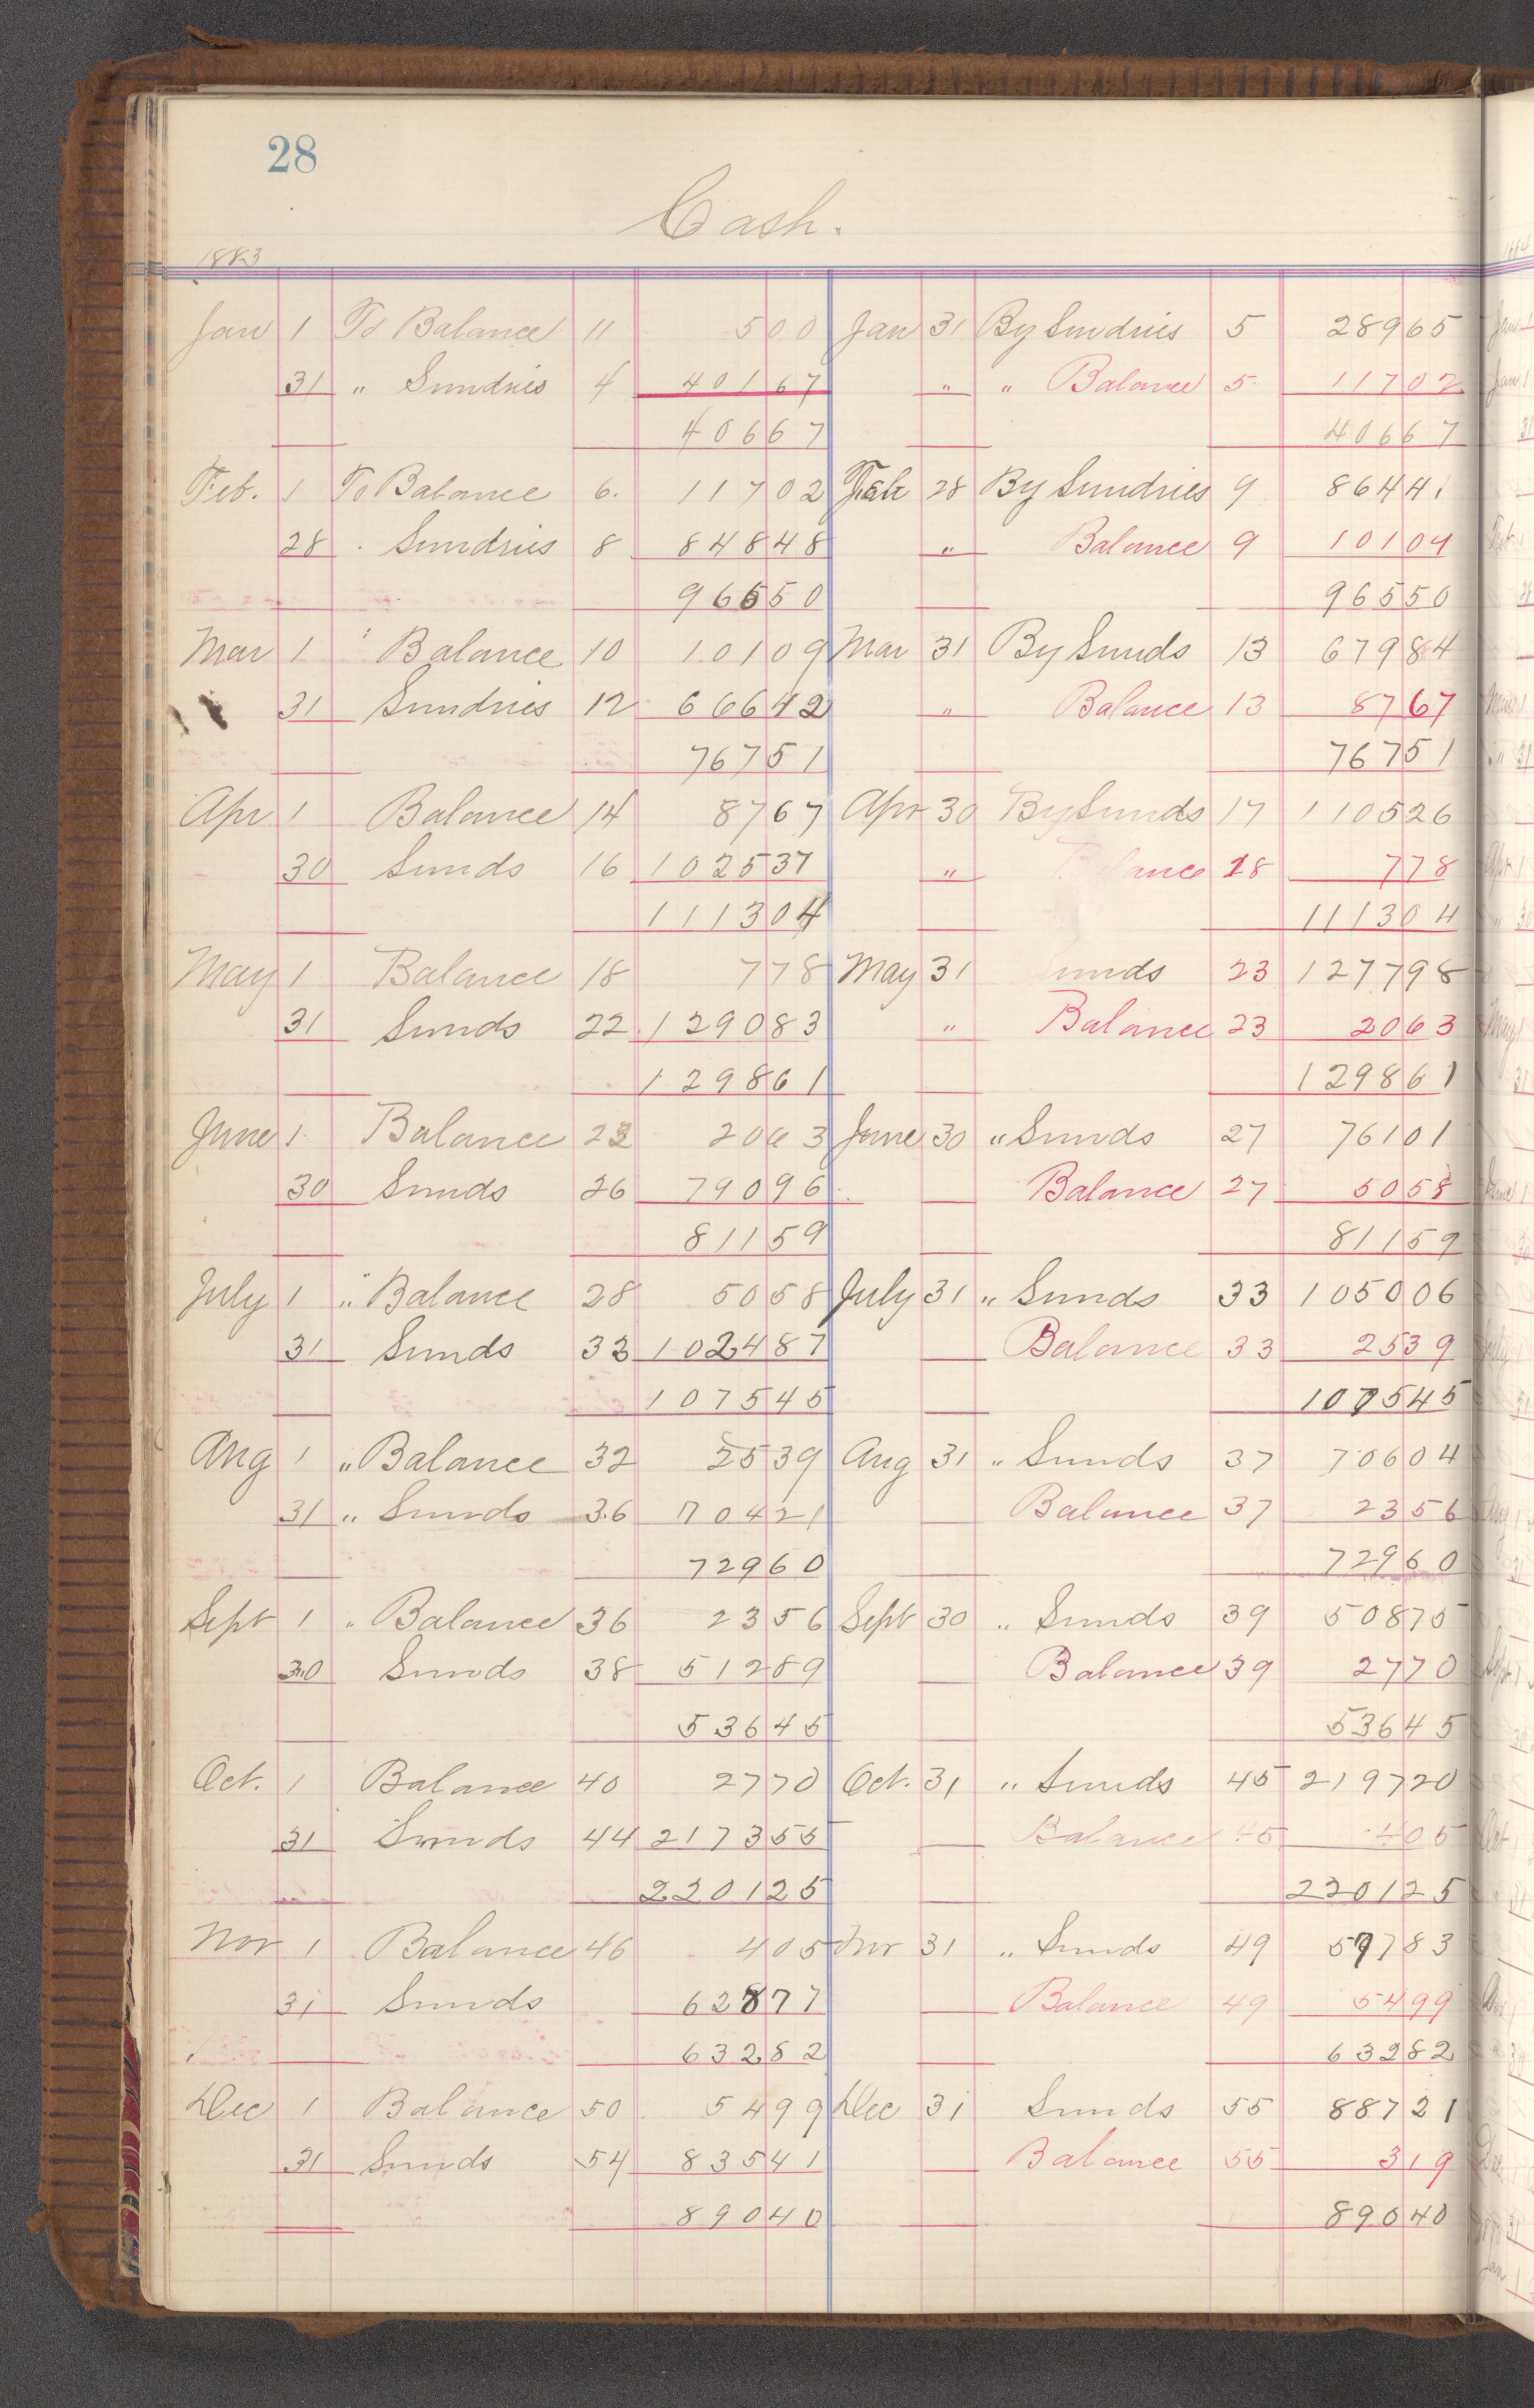 28
Cash.
1883
Jan 1 To Balance 11 500 Jan 31 By Sundries 5 28965
31 " Sundries 4 40167 " " Balance 5 11702
40667 40667
Feb. 1 To Balance 6. 11702 Feb 28 By Sundries 9 86441
28 . Sundries 8 84848 " Balance 9 10109
96550 96550
Mar 1 " Balance 10 10109 Mar 31 By Sunds 13 67984
31 Sundries 12 66642 " Balance 13 8767
76751 76751
Apr 1 Balance 14 8767 Apr 30 By Sunds 17 110526
30 Sunds 16 102537 " lance 18 778
111304 111304
May 1 Balance 18 778 May 31 unds 23 127798
31 Sunds 22 129083 " Balance 23 2063
129861 129861
June 1 Balance 23 2063 June 30 " Sunds 27 76101
30 Sunds 26 79096 Balance 27 5058
81159 81159
July 1 " Balance 28 5058 July 31 " Sunds 33 105006
31 Sunds 33 102487 Balance 33 2539
107545 107545
Aug 1 " Balance 32 2539 Aug 31 " Sunds 37 70604
31 " Sunds 36 70421 Balance 37 2356
72960 72960
Sept 1 " Balance 36 2356 Sept 30 " Sunds 39 50875
30 Sunds 38 51289 Balance 39 2770
53645 53645
Oct. 1 Balance 40 2770 Oct. 31 " Sunds 45 219720
31 Sunds 44 217355 Balance 45 405
220125 220125
Nov 1 Balance 46 405 Nov 31 " Sunds 49 57783
31 Sunds 62877 Balance 49 5499
63282 63282
Dec 1 Balance 50 5499 Dec 31 Sunds 55 88721
31 Sunds 54 83541 Balance 55 319
89040 89040